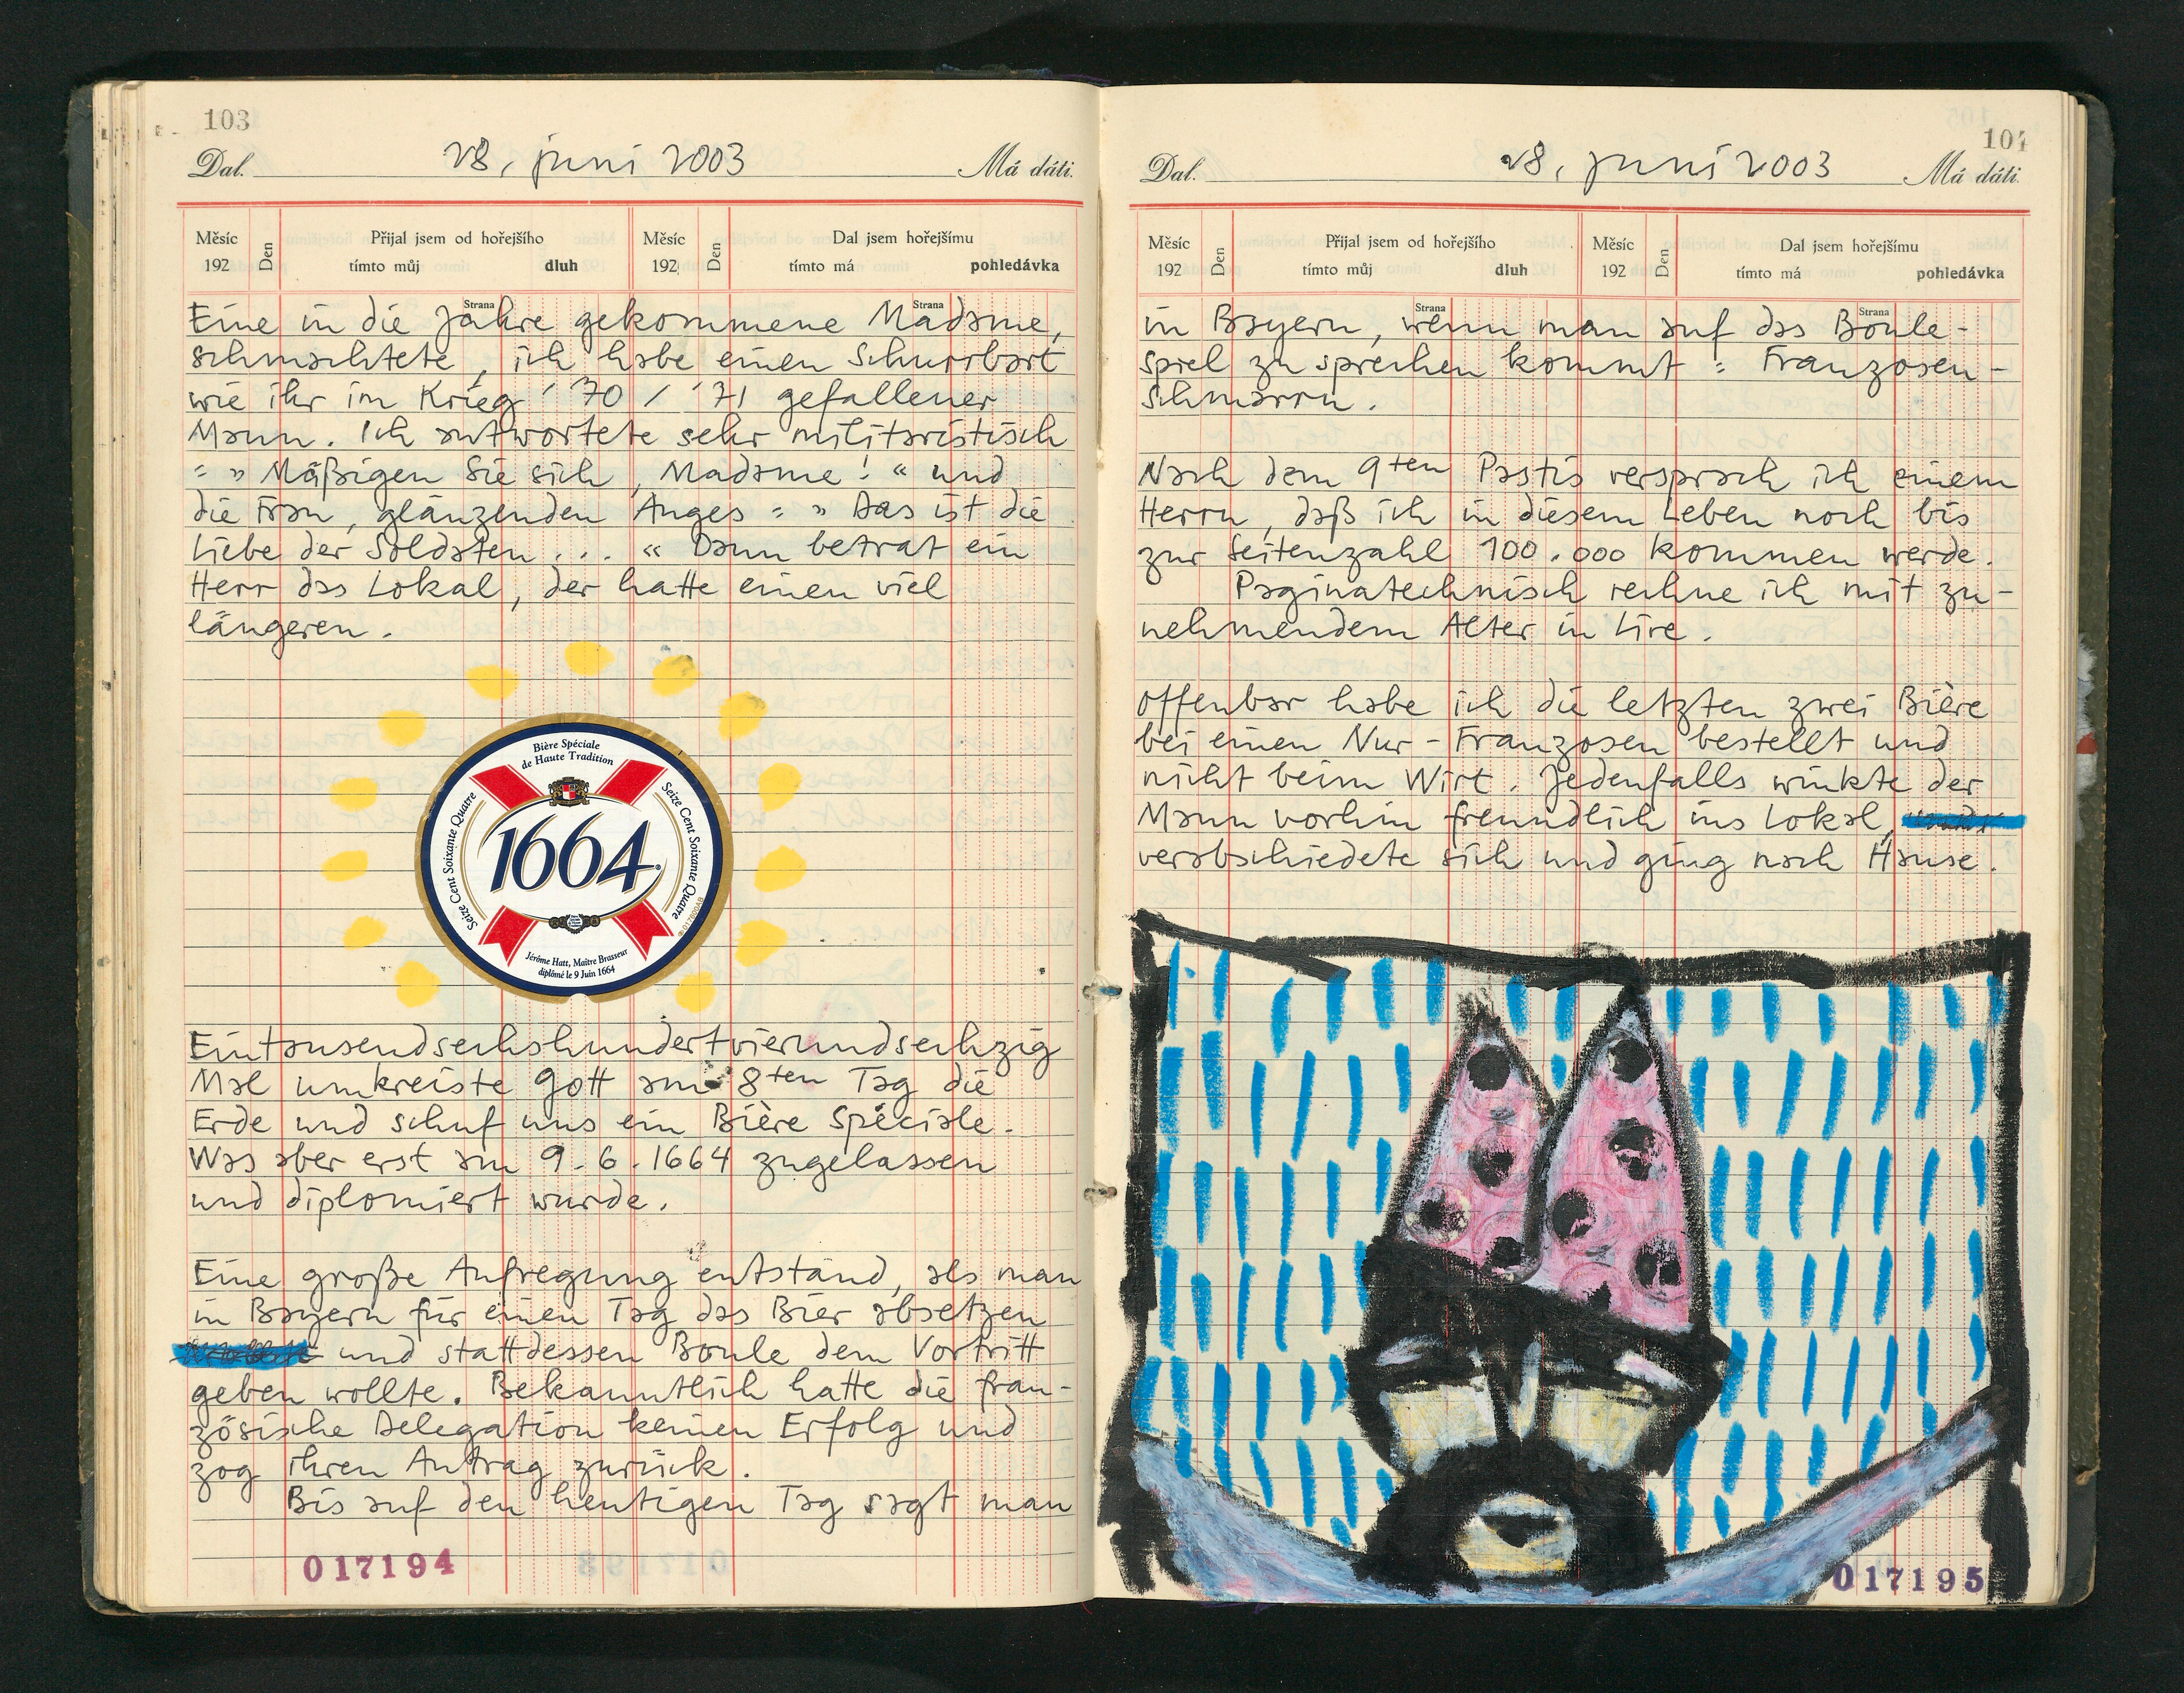 103
Dal. 28. juni 2003 Má dáti.
Měsíc Den Přijal jsem od hořejšího Měsíc Den Dal jsem hořejšímu
192 tímto můj dluh 192 tímto má pohledávka
Strana Strana
Eine in die Jahre gekommene Madame,
schmachtete, ich habe einen Schnurrbart
wie ihr im Krieg '70 / '71 gefallener
Mann. Ich antwortete sehr militaristisch
: „Mäßigen Sie sich, Madame!“ und
die Frau, glänzenden Auges: „Das ist die
Liebe der Soldaten...“ Dann betrat ein
Herr das Lokal, der hatte einen viel
längeren.
Bière Spéciale
de Haute Tradition
Seize Cent Soixante Quatre
Seize Cent Soixante Quatre
1664
Jérôme Hatt, Maître Brasseur
diplômé le 9 Juin 1664
Eintausendsechshundertvierundsechzig
Mal umkreiste Gott am 8ten Tag die
Erde und schuf uns ein Bière Spéciale.
Was aber erst am 9.6.1664 zugelassen
und diplomiert wurde.
Eine große Aufregung entstand, als man
in Bayern für einen Tag das Bier absetzen
und stattdessen Boule dem Vortritt
geben wollte. Bekanntlich hatte die fran-
zösische Delegation keinen Erfolg und
zog ihren Antrag zurück.
Bis auf den heutigen Tag sagt man
017194
104
Dal. 28. juni 2003 Má dáti.
Měsíc Den Přijal jsem od hořejšího Měsíc Den Dal jsem hořejšímu
192 tímto můj dluh 192 tímto má pohledávka
Strana Strana
in Bayern, wenn man auf das Boule-
spiel zu sprechen kommt: Franzosen-
schmarrn.
Nach dem 9ten Pastis versprach ich einem
Herrn, daß ich in diesem Leben noch bis
zur Seitenzahl 100.000 kommen werde.
Paginatechnisch rechne ich mit zu-
nehmendem Alter in Lire.
Offenbar habe ich die letzten zwei Bière
bei einen Nur-Franzosen bestellt und
nicht beim Wirt. Jedenfalls winkte der
Mann vorhin freundlich ins Lokal,
verabschiedete sich und ging nach Hause.
017195